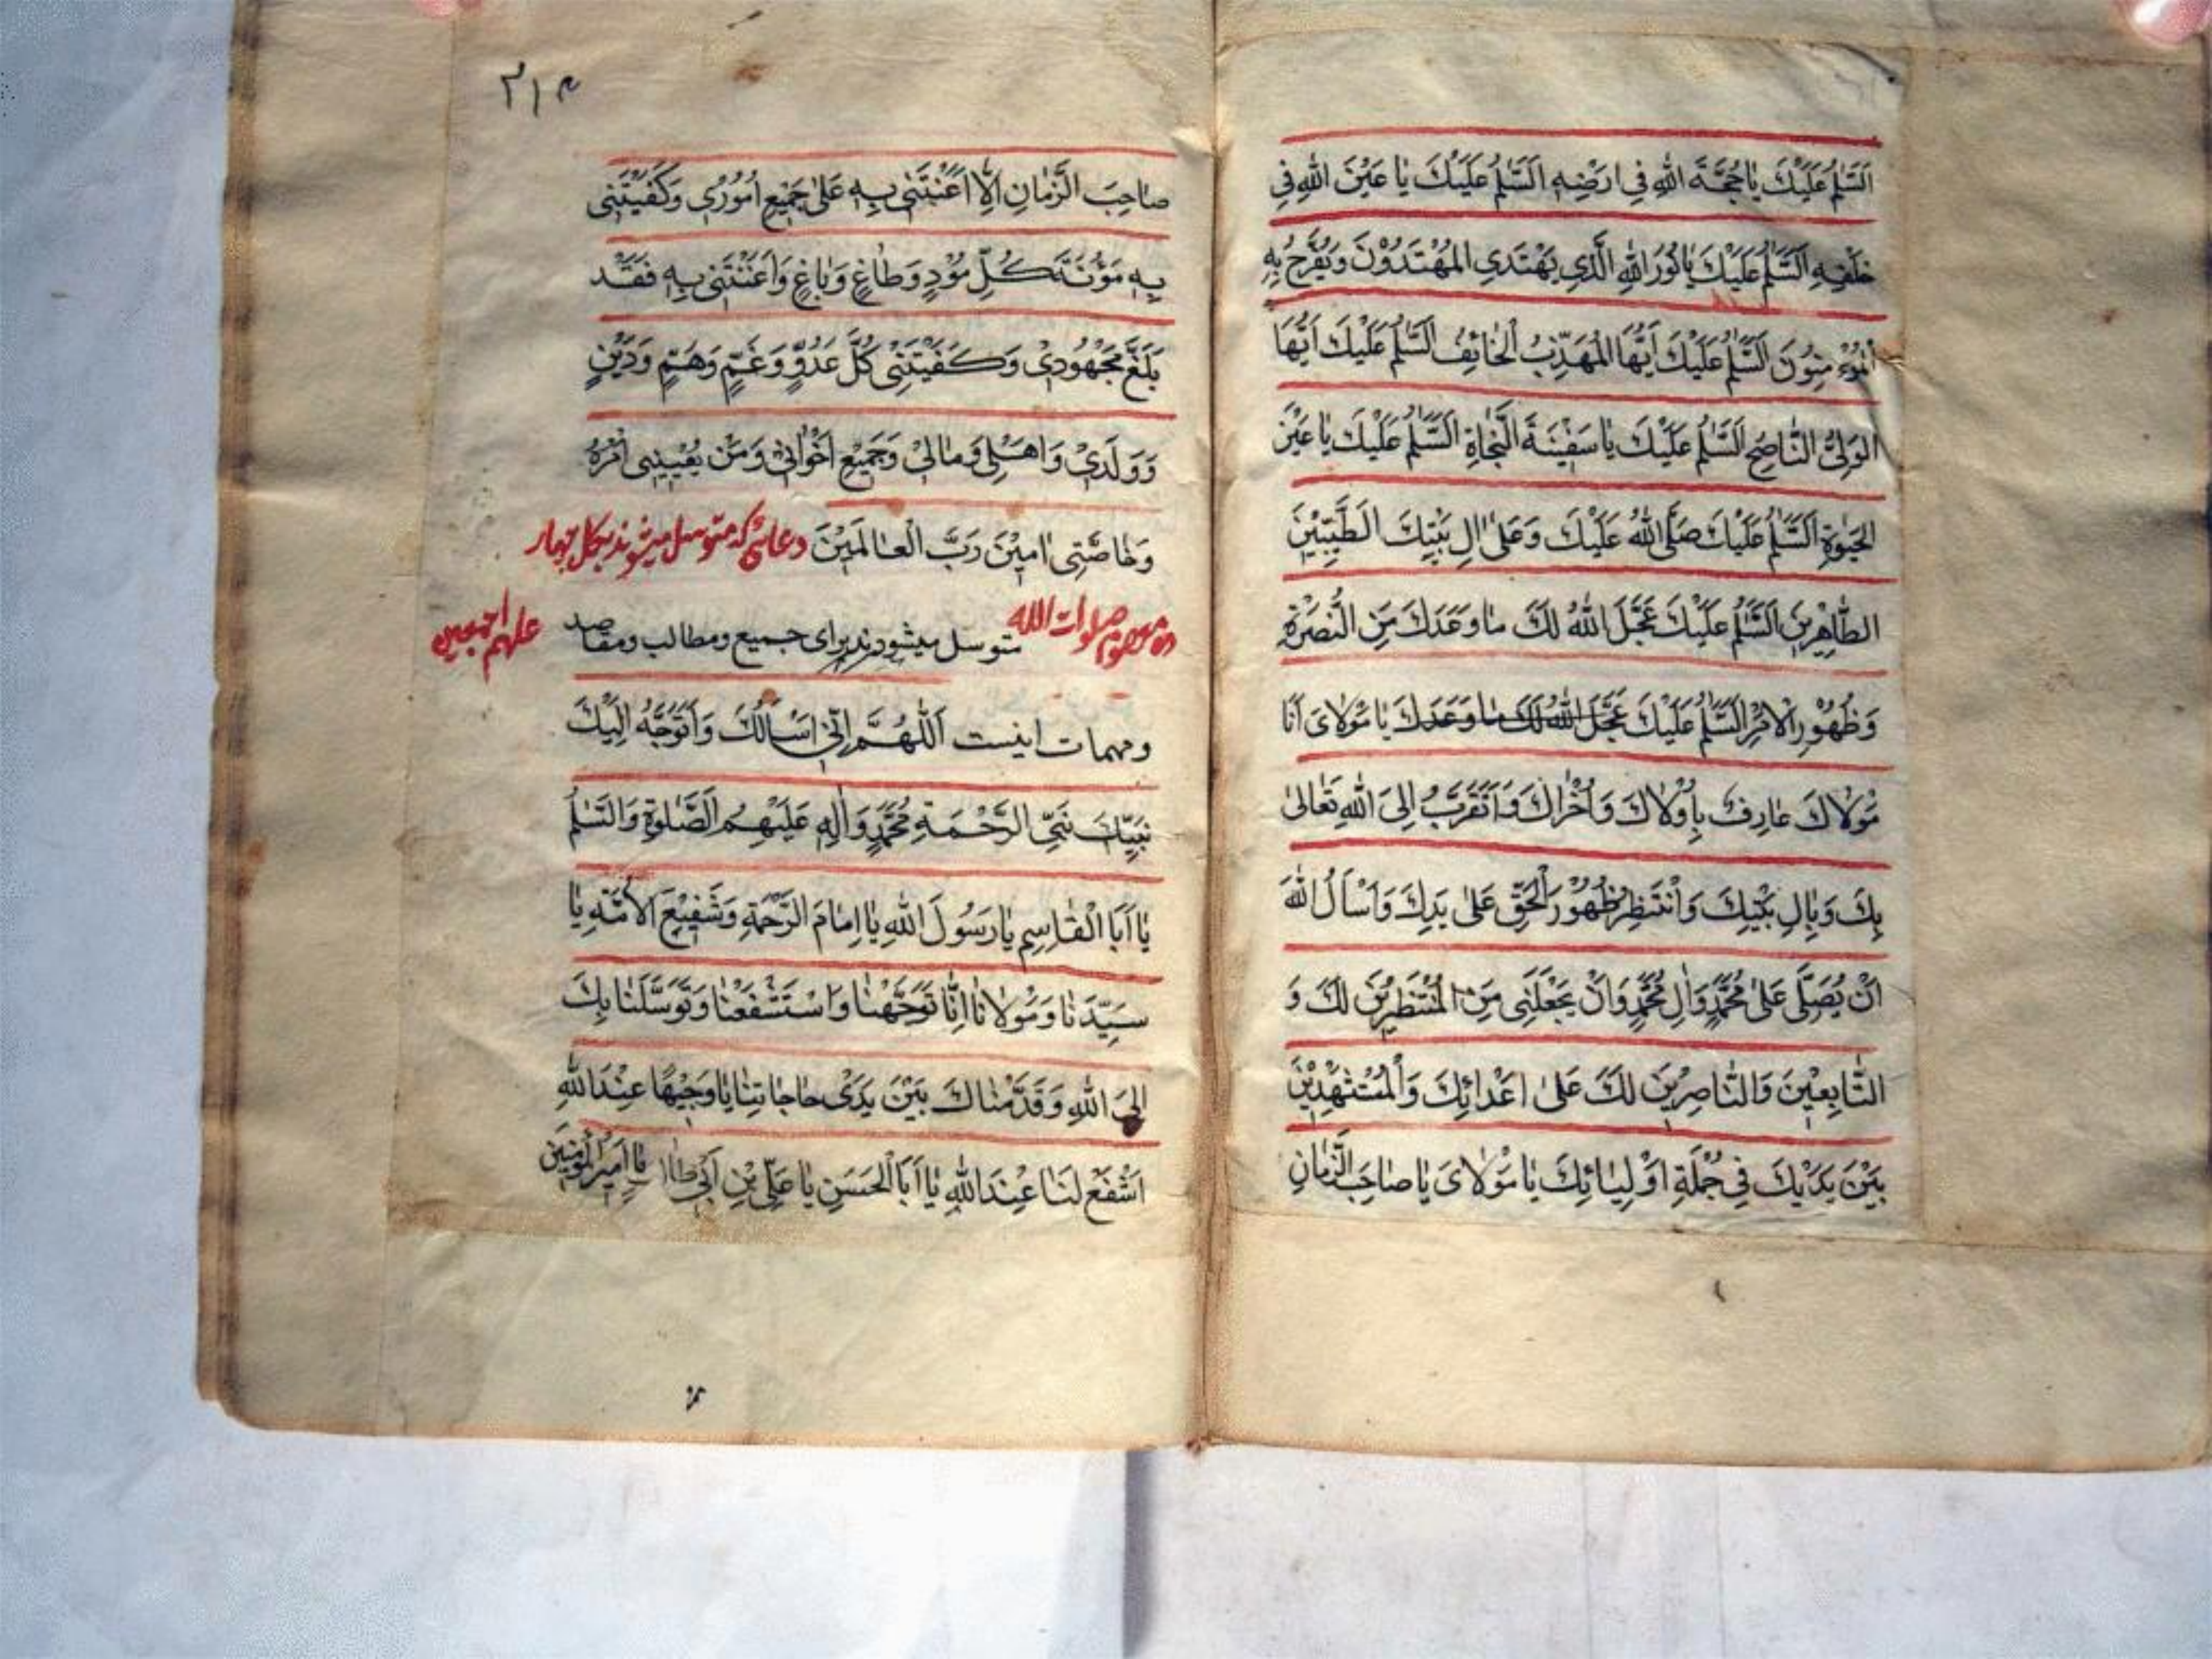 اَلسَّلٰمُ عَلَيْكَ يَا حُجَّةَ اللهِ فِي اَرْضِهِ اَلسَّلٰمُ عَلَيْكَ يَا عَيْنَ اللهِ فِي
خَلْقِهِ اَلسَّلٰمُ عَلَيْكَ يَا نُورَ اللهِ الَّذِي يَهْتَدِي الْمُهْتَدُوْنَ وَيُفَرَّجُ بِهِ
الْمُؤْمِنُونَ اَلسَّلٰمُ عَلَيْكَ اَيُّهَا الْمُهَذَّبُ الْخَائِفُ اَلسَّلٰمُ عَلَيْكَ اَيُّهَا
الْوَلِىُّ النَّاصِحُ اَلسَّلٰمُ عَلَيْكَ يَا سَفِيْنَةَ النَّجَاةِ اَلسَّلٰمُ عَلَيْكَ يَا عَيْنَ
الْحَيٰوةِ اَلسَّلٰمُ عَلَيْكَ صَلَّى اللهُ عَلَيْكَ وَعَلٰى اٰلِ بَيْتِكَ الطَّيِّبِيْنَ
الطَّاهِرِيْنَ اَلسَّلٰمُ عَلَيْكَ عَجَّلَ اللهُ لَكَ مَا وَعَدَكَ مِنَ النُّصْرَةِ
وَظُهُوْرِ الْاَمْرِ اَلسَّلٰمُ عَلَيْكَ عَجَّلَ اللهُ لَكَ مَا وَعَدَكَ يَا مَوْلَاىَ اَنَا
مَوْلَاكَ عَارِفٌ بِاُوْلَاكَ وَاُخْرَاكَ وَاَتَقَرَّبُ اِلَى اللهِ تَعَالٰى
بِكَ وَبِاٰلِ بَيْتِكَ وَاَنْتَظِرُ ظُهُوْرَ الْحَقِّ عَلٰى يَدِكَ وَاَسْاَلُ اللهَ
اَنْ يُصَلِّىَ عَلٰى مُحَمَّدٍ وَاٰلِ مُحَمَّدٍ وَاَنْ يَجْعَلَنِى مِنَ الْمُنْتَظِرِيْنَ لَكَ وَ
التَّابِعِيْنَ وَالنَّاصِرِيْنَ لَكَ عَلٰى اَعْدَائِكَ وَالْمُسْتَشْهَدِيْنَ
بَيْنَ يَدَيْكَ فِي جُمْلَةِ اَوْلِيَائِكَ يَا مَوْلَاىَ يَا صَاحِبَ الزَّمَانِ
٣١٤
صَاحِبَ الزَّمَانِ اِلَّا اَعَنْتَنِى بِهِ عَلٰى جَمِيْعِ اُمُوْرِى وَكَفَيْتَنِى
بِهِ مَؤُنَةَ كُلِّ مُوْذٍ وَطَاغٍ وَبَاغٍ وَاَعَنْتَنِى بِهِ فَقَدْ
بَلَغَ مَجْهُوْدِى وَكَفَيْتَنِى كُلَّ عَدُوٍّ وَغَمٍّ وَهَمٍّ وَدَيْنٍ
وَوَلَدِىْ وَاَهْلِى وَمَالِىْ وَجَمِيْعِ اَخْوَانِى وَمَنْ يُعْيِيْنِى اَمْرُهُ
وَخَاصَّتِى اٰمِيْنَ رَبَّ الْعَالَمِيْنَ دعائى كه متوسل ميشوند بكل چهار
ده معصوم صلوات الله عليهم اجمعين متوسل ميشوند براى جميع ومطالب ومقاصد
ومهمات اينست اَللّٰهُمَّ اِنِّى اَسْاَلُكَ وَاَتَوَجَّهُ اِلَيْكَ
نَبِيِّكَ نَبِيِّ الرَّحْمَةِ مُحَمَّدٍ وَاٰلِهِ عَلَيْهِمُ الصَّلٰوةُ وَالسَّلٰمُ
يَا اَبَا الْقَاسِمِ يَا رَسُوْلَ اللهِ يَا اِمَامَ الرَّحْمَةِ وَشَفِيْعَ الْاُمَّةِ يَا
سَيِّدَنَا وَمَوْلَانَا اِنَّا تَوَجَّهْنَا وَاسْتَشْفَعْنَا وَتَوَسَّلْنَا بِكَ
اِلَى اللهِ وَقَدَّمْنَاكَ بَيْنَ يَدَىْ حَاجَاتِنَا يَا وَجِيْهًا عِنْدَ اللهِ
اِشْفَعْ لَنَا عِنْدَ اللهِ يَا اَبَا الْحَسَنِ يَا عَلِىَّ بْنَ اَبِى طَالِبٍ يَا اَمِيْرَ الْمُؤْمِنِيْنَ